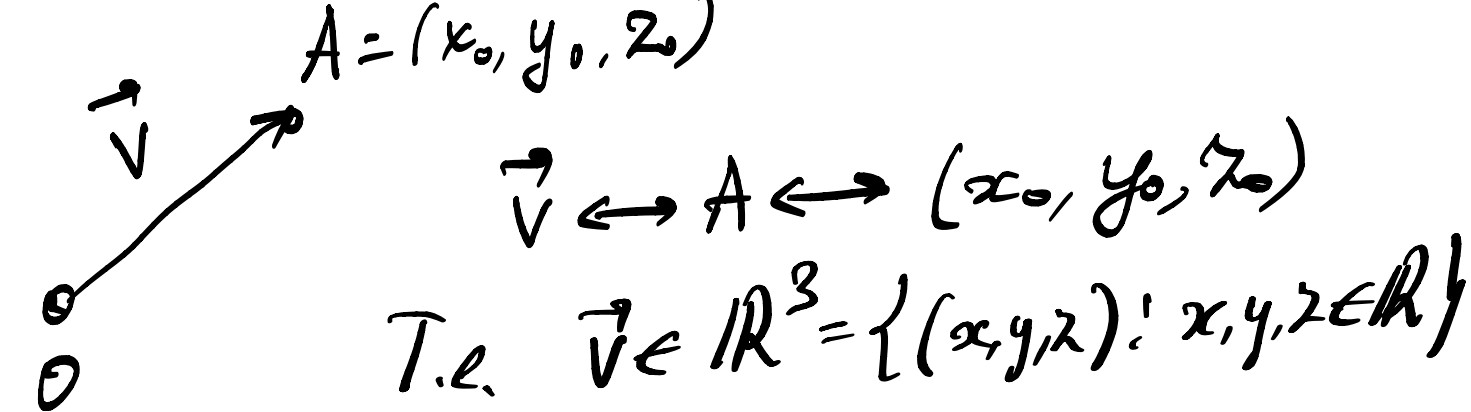 A = (x₀, y₀, z₀)
v⃗
v⃗ ↔ A ↔ (x₀, y₀, z₀)
О
Т.е. v⃗ ∈ ℝ³ = {(x, y, z) : x, y, z ∈ ℝ}